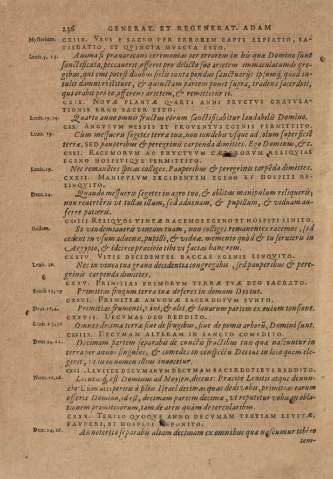 236 GENERAT. ET REGENERAT. ADAM
Mysterium. CXIIX. USUS E SACRO PER ERROREM CAPTI EXPIATIO, SA-
TISDATIO, ET QUINCTA MULCTA ESTO.
Levit. 5, 15. Anima si prævaricans ceremonias per errorem in his quæ Domino sunt
sanctificata, peccaverit offeret pro delicto suo arietem immaculatum de gre-
gibus, qui emi potest duobus siclis iuxta pondus sanctuarij: ipsumq́; quod in-
tulit damni restituet, & quinctam partem ponet supra, tradens sacerdoti,
qui orabit pro eo offerens arietem, & remittetur ei.
CXIX. NOVÆ PLANTÆ QUARTI ANNI FRUCTUS GRATULA-
TIONIS ERGO SACER ESTO.
Levit. 19, 24. Quarto anno omnis fructus eorum sanctificabitur laudabilis Domino.
CXX. ANGULUM MESSIS ET PROVENTUS EGENIS PERMITTITO.
Levit. 19. Cum messueris segetes terræ tuæ, non tondebis usque ad solum superficiē
terræ, SED pauperibus & peregrinis carpenda dimittes. Ego Dominus, &c.
CXXI. RACEMORUM AC FRUCTUUM RELIQUIAS
EGENO HOSPITIQUE PERMITTITO.
Levit. 19. Nec remanentes spicas colliges. Pauperibus & peregrinis carpenda dimittes.
CXXII. MANIPULUM EXCIDENTEM EGENO ET HOSPITI RE-
LINQUITO.
Deut. 24. Quando messueris segetes in agro tuo, & oblitus manipulum reliqueris,
non reverteris ut tollas illum, sed advenam, & pupillum, & viduam au-
ferre patieris.
CXXIII RELIQUOS VINEÆ RACEMOS EGENO ET HOSPITI SINITO.
Ibidem. Si vindemiaveris vineam tuam, non colliges remanentes racemos, sed
cedent in usum advenæ, pupilli, & viduæ. memento quod & tu servieris in
Aegypto, & idcirco præcipio tibi ut facias hanc rem.
CXXIV. VITIS DECIDENTES BACCAS EGENIS LINQUITO.
Levit. 19. Nec in vinea tua grana decidentia congregabis, sed pauperibus & pere-
grinis carpenda dimittes.
CXXV. PRIMITIAS PRIMORUM TERRÆ TUÆ DEO SACRATO.
Primitias frugum terræ tuæ deferes in domum Dei tui.
CXXVI. PRIMITIÆ ANNONÆ SACERDOTUM SUNTO.
Primitias frumenti, vini, & olei, & lanarum partem ex ovium tonsione.
CXXVII. DECUMAS DEO REDDITO.
Omnes decimæ terræ sive de frugibus, sive de pomis arborū, Domini sunt.
CXXIIX. DECUMAM ALTERAM IN SANCTO COMEDITO.
Decimam partem separabis de cunctis fructibus tuis qui nascuntur in
terra per annos singulos, & comedes in conspectu Dei tui in loco quem ele-
gerit, ut in eo nomen illius invocetur.
CXXIX. LEVITES DECUMARUM DECUMAM SACERDOTIBUS REDDITO.
Locutusq́; est Dominus ad Moysen, dicens: Præcipe Levitis atque denun-
cia: Cum acceperitis à filiis Israel decimas quas dedi vobis, primitias earum
offerte Domino, id est, decimam partem decimæ, ut reputetur vobis in obla-
tionem primitivorum, tam de areis quàm de torcularibus.
CXXX. TERTIO QUOQUE ANNO DECUMAM TERTIAM LEVITÆ,
PAUPERI, ET HOSPITI SEPONITO.
Anno tertio separabis aliam decimam ex omnibus quæ nascuntur tibi eo
tem-